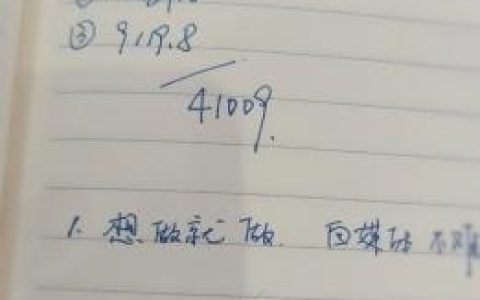 ③ 919.8
41009.
1. 想做就做 自媒体 不难